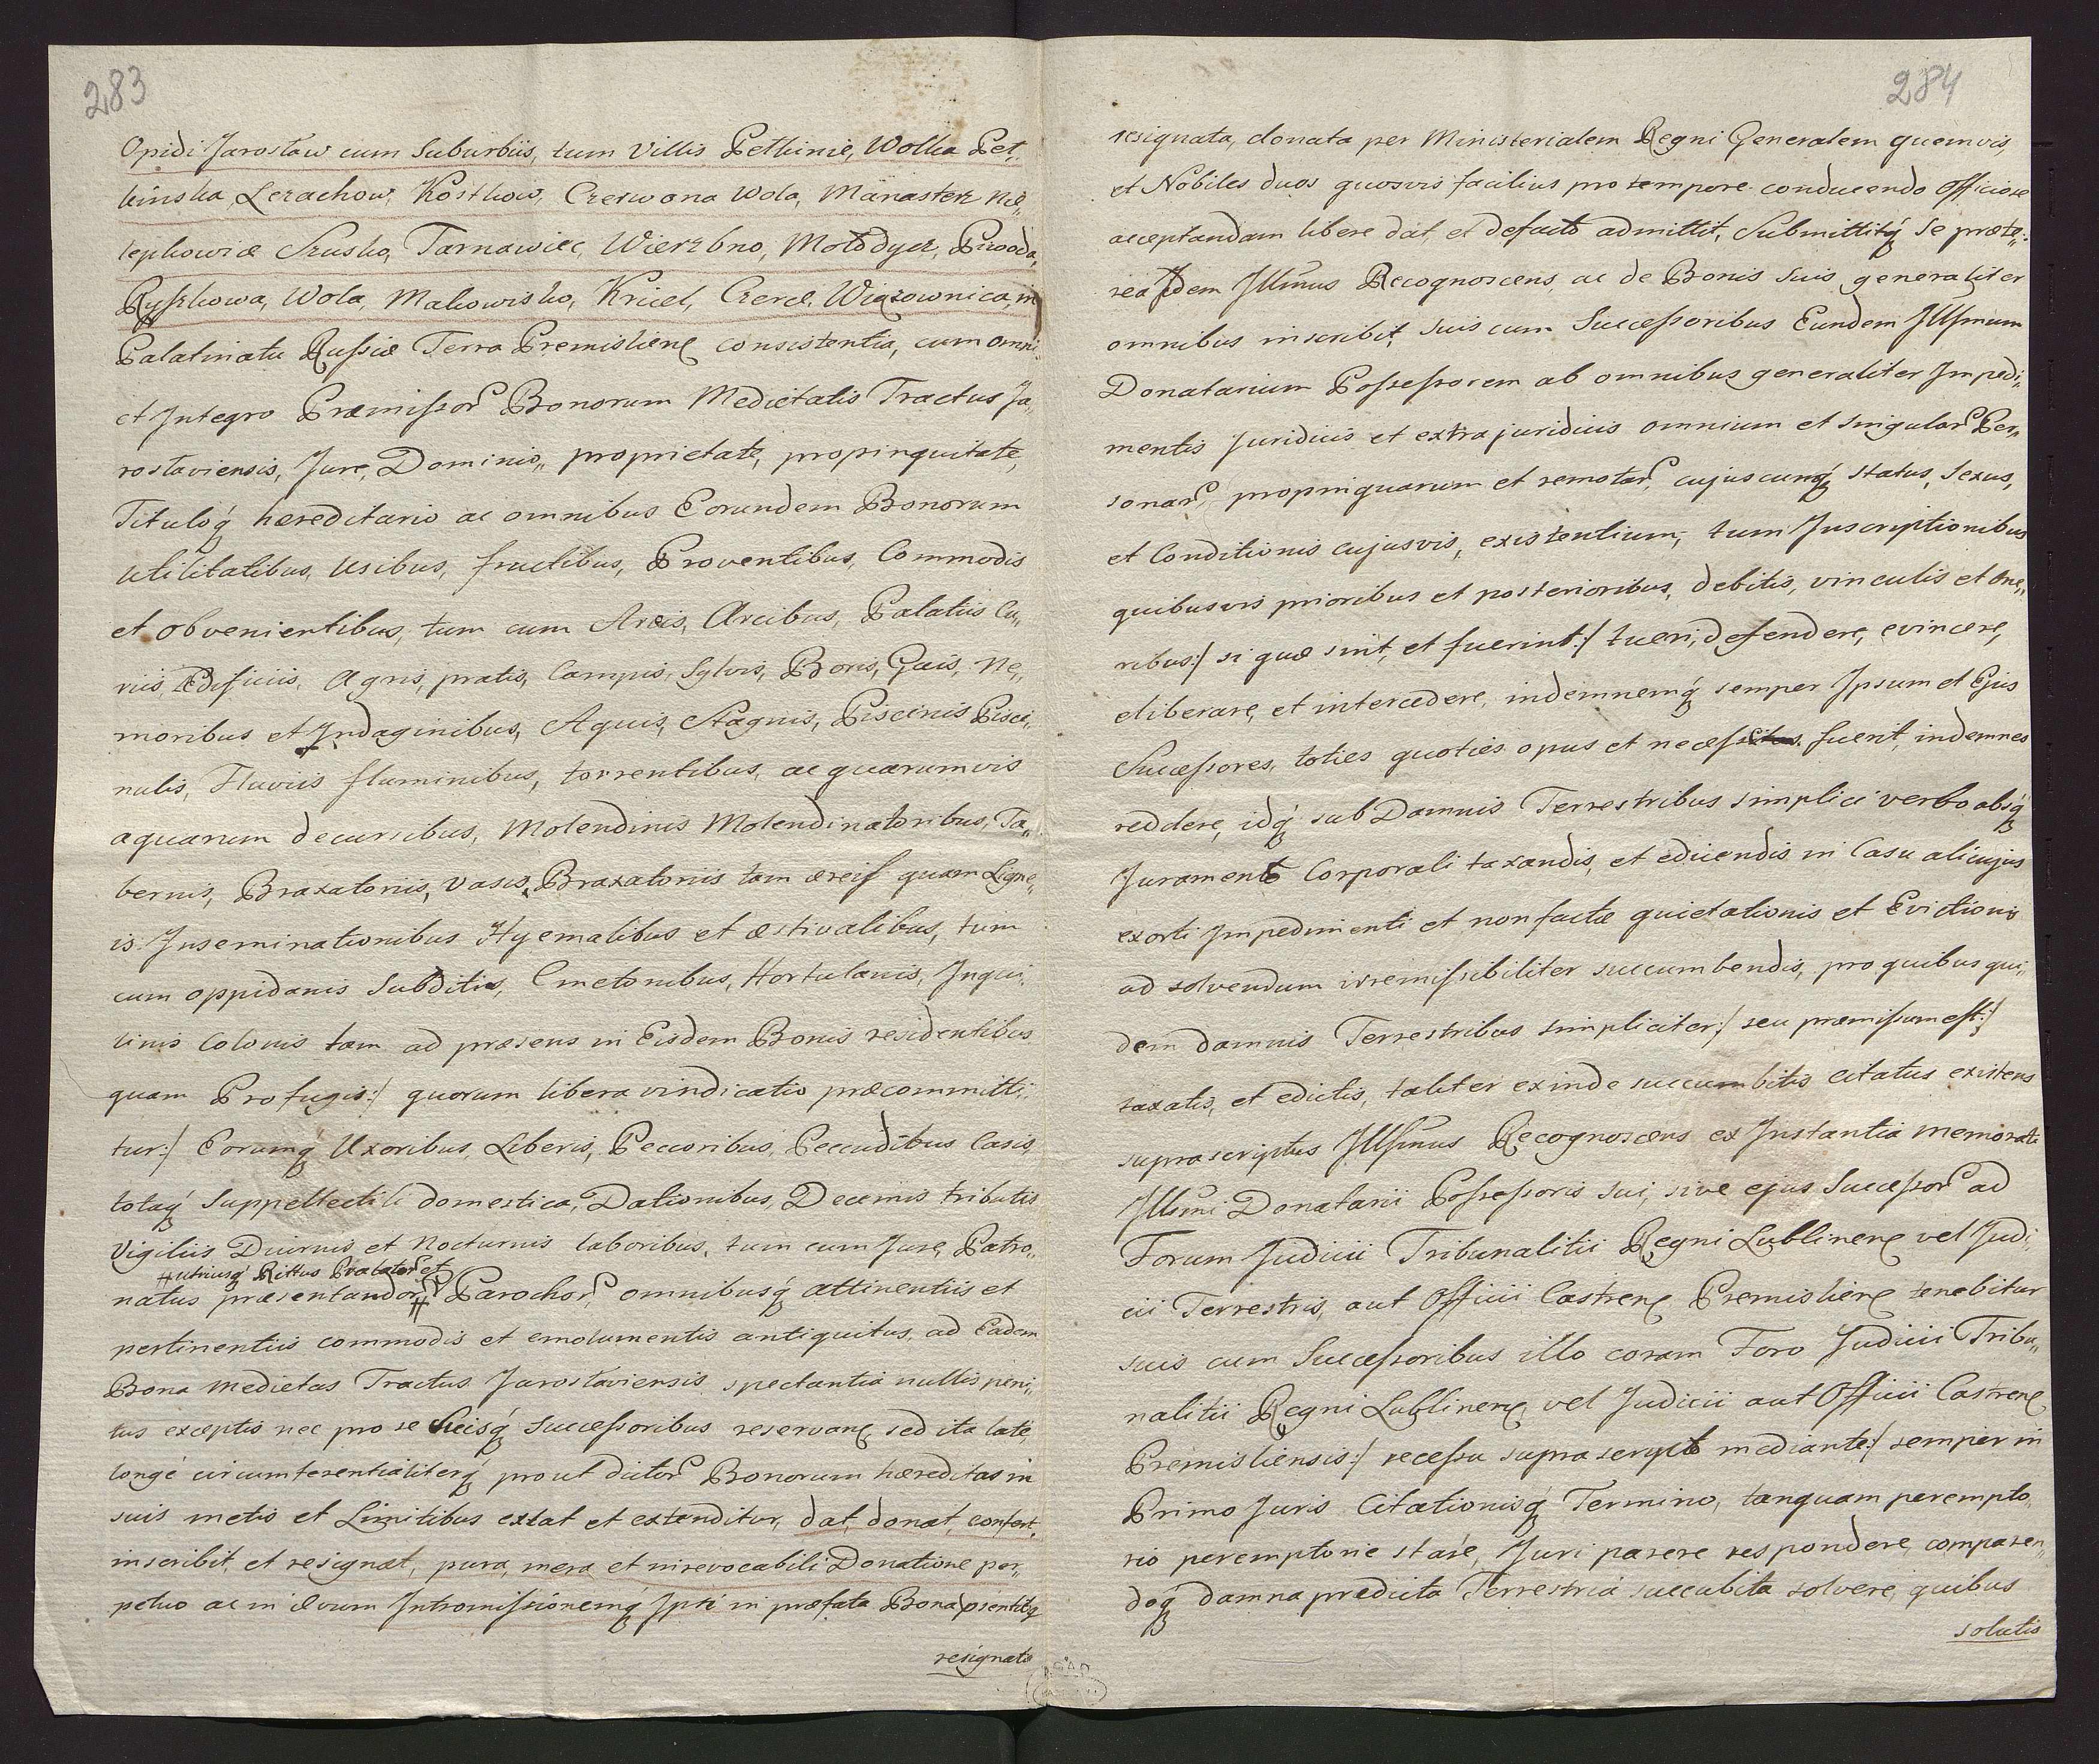 283
Opidi Jarosław cum Suburbiis, tum Villis Pełkinie, Wolka Peł„
kinska, Lezachow, Kostkow, Czerwona Wola, Manasterz Nie„
lepkowice Szusko, Tarnawiec, Wierzbno, Mołodycz, Piwoda,
Ryszkowa, Wola, Makowisko, Kricel, Cerce, Wiązownica, in
Palatinatu Russiæ Terra Premisliens consistentia, cum omni
et Integro Præmissor Bonorum Medietatis Tractus Ja„
roslaviensis, Jure, Dominio„ proprietate, propinquitate,
Tituloq́ hæreditario ac omnibus Eorundem Bonorum
utilitatibus, usibus, fructibus, Proventibus, Commodis
et obvenientibus, tum cum Areis, Arcibus, Palatiis Cu„
riis, Ædificiis, Agris, pratis, Campis, Sylvis, Boris, Gais, Ne„
moribus et Indaginibus, Aquis, Stagnis, Piscinis Pisci„
nulis, Fluviis fluminibus, torrentibus, ac quarumvis
aquarum decursibus, Molendinis Molendinatoribus, Ta„
bernis, Braxatoriis, Vasis, Braxatoriis tam æreis quam Ligne„
is Inseminationibus Hyemalibus et æstivalibus, tum
cum oppidanis Subditis, Cmetonibus, Hortulanis, Inqui„
linis Colonis tam ad præsens in Eisdem Bonis residentibus
quam Profugis:/ quorum libera vindicatio præcommitti„
tur:/ Eorumq́ Uxoribus, Liberis, Pecoribus, Peccudibus Casis,
totaq́ Suppellectili domestica, Dationibus, Decimis tributis
Vigiliis Diurnis et Nocturnis laboribus, tum cum Jure Patro„
# utriusq́ Rittus Prælator et
natus præsentandor # Parochor, omnibusq́ attinentiis et
pertinentiis commodis et emolumentis antiquitus, ad Eadem
Bona medietas Tractus Jaroslaviensis spectantia nullis peni„
tus exceptis nec pro se Suisq́ Successoribus reservan sed ita late,
longé circumferentialiterq́ prout dictor Bonorum hæreditas in
suis metis et Limitibus extat et extenditur, dat, donat, confert,
inscribit, et resignat, pura, mera et irrevocabili Donatione per„
petuo ac in ævum Intromissionemq́ Ipsi in præfata Bona psentibq
resignata
284
resignata, donata per Ministerialem Regni Generalem quemvis,
et Nobiles duos quosvis facilius pro tempore conducendo officiose
acceptandam libere dat, et defacto admittit, Submittitq́ Se præte„
rea Idem Illmus Recognoscens, ac de Bonis suis generaliter
omnibus inscribit suis cum Successoribus Eundem Illsmum
Donatarium Possessorem ab omnibus generaliter Impedi„
mentis Juridicis et extrajuridicis omnium et singular Per„
sonar, propinquarum et remotar, cujuscunq́ status, Sexus,
et Conditionis cujusvis, existentium, tum Inscriptionibus
quibusvis prioribus et posterioribus, debitis, vinculis et One„
ribus:/ si quæ sint, et fuerint:/ tueri, defendere, evincere,
eliberare, et intercedere, indemnemq́ semper Ipsum et Ejus
Successores, toties quoties opus et necess fuerit, indemnes
reddere, idq́ sub Damnis Terrestribus simplici verbo absq́
Juramento Corporali taxandis, et edicendis in Casu alicujus
exorti Impedimenti et non factæ quietationis et Evictionis
ad solvendum irremissibiliter succumbendis, pro quibus qui„
dem damnis Terrestribus simpliciter:/ seu præmissum est:/
taxatis, et edictis, taliter exinde succumbitis citatus existens
suprascriptus Illsmus Recognoscens ex Instantia memorati
Illsmi Donatarii Possessoris sui, sive ejus Successor ad
Forum Judicii Tribunalitii Regni Lublinen vel Judi„
cii Terrestris, aut Officii Castren Premislien tenebitur
suis cum Successoribus illo coram Foro Judicii Tribu„
nalitii Regni Lublinen vel Judicii aut Officii Castren
Premisliensis:/ recessu suprascripto mediante:/ semper in
Primo Juris Citationisq́ Termino, tanquam perempto„
rio peremptorie stare, Juri parere respondere, comparen„
doq́ damna prædicta Terrestria succubita solvere, quibus
solutis